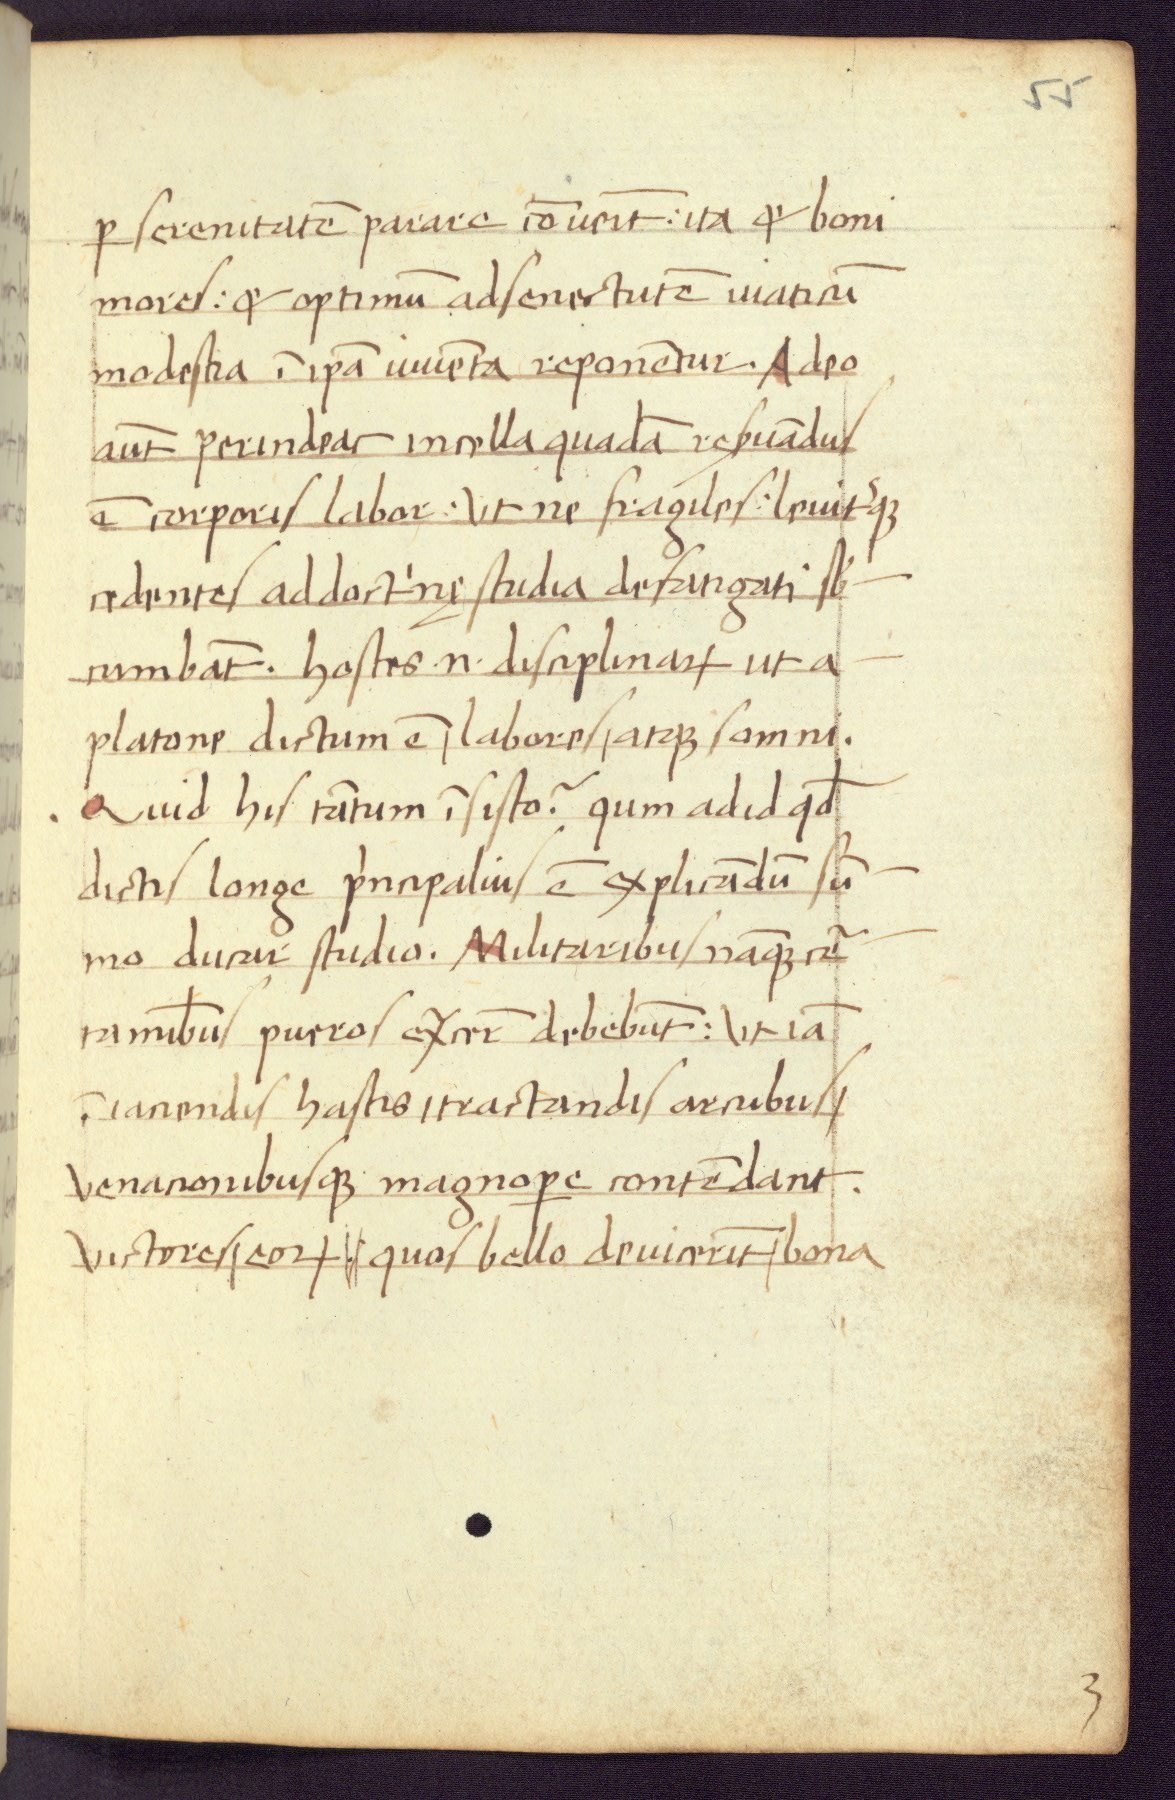 55
ꝑ serenitatē parare cōueīt: ita & boni
mores: & optimū adsenectutē uiaticū
modestia ī ip̄a iuuēta reponētur. Adeo
aūt perindeac incella quadā reẜuādus
ē corporis labor: Vt ne fragiles: leuitʳqꝫ
cedentes addoctⁱnę studia defatigati sb̄-
cumbāt. hostes .n. disciplinaꝝ ut a-
platone dictum ē laboresatqꝫ somni.
Quid his tātum īsisto? qum adid qđ
dictis longe pⁱncipalius ē explicādū sū-
mo ducar studio. Militaribus nāqꝫ cer̄-
tamīb'us pueros ex̄cer̄ debebūt: Vt iā
ī iaciendis hastis tractandis arcubus
Venacionibusqꝫ magnoꝑe contēdant.
Victores eoꝝ quos bello deuicerīt bona
3